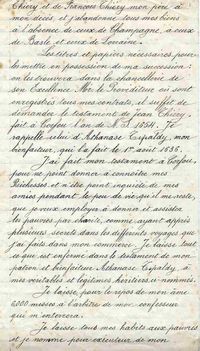 Thiery et de François Thiery mon père à
mon décès, et j'abandonne tous mes biens
à l'absence de ceux de Champagne, a ceux
de Basle et ceux de Lorraine.
Les titres et papiers nécessaires pour
les mettre en possession de ma succession:
on les trouvera dans la chancellerie de
son Excellence Mr le Provéditeur où sont
enregistrés tous mes contrats, il suffit de
demander le testament de Jean Thiery,
fait à Corfou l'an de N. S. 1654. Je
rappelle celui d'Athanase Tipaldy, mon
bienfaiteur, qui l'a fait le 1er août 1636.
J'ai fait mon testament à Corfou,
pour ne point donner à connoitre mes
Richesses et n'être point inquiété de mes
amis pendant le peu de vie qui me reste
que je veux employer à donner et assister
les pauvres par charité, comme ayant appris
plusieurs secrets dans les différents voyages que
j'ai faits dans mon commerce. Je laisse tout
ce qui est enfermé dans le testament de mon
patron et bienfaiteur Athanase Tipaldy, à
mes véritables et légitimes héritiers ci-nommés.
Je laisse, pour le repos de mon âme
6000 messes à l'arbitre de mon confesseur
qui m'enterrera.
Je laisse tous mes habits aux pauvres
et je nomme pour exécuteur de mon